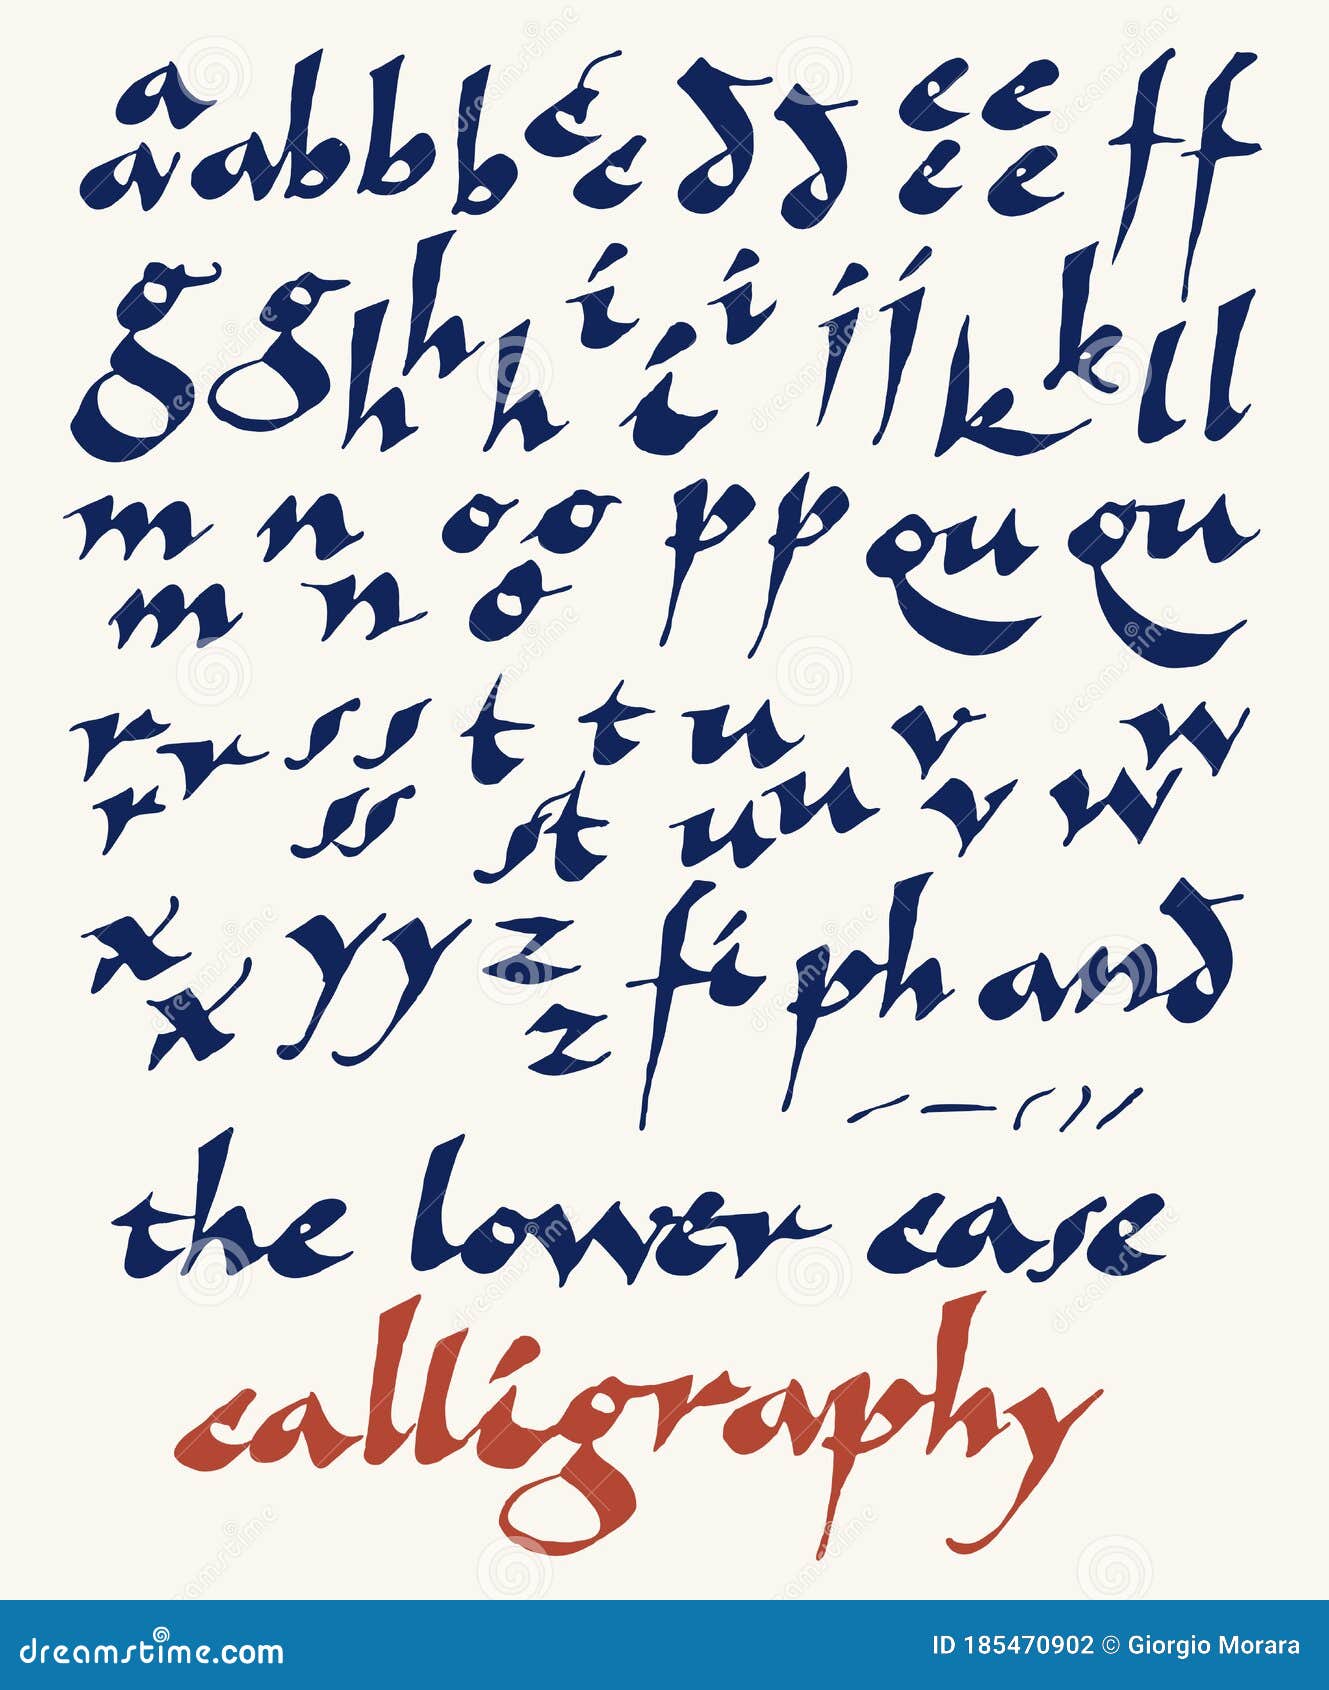 a a a b b b c c d d e e e e f f
g g h h h i i i j j k k l l
m m n n o o o p p qu qu
r r r s s ss t t st u u u v v w w
x x y y z z fi ph and
the lower case
calligraphy
dreamstime.com
ID 185470902 © Giorgio Morara